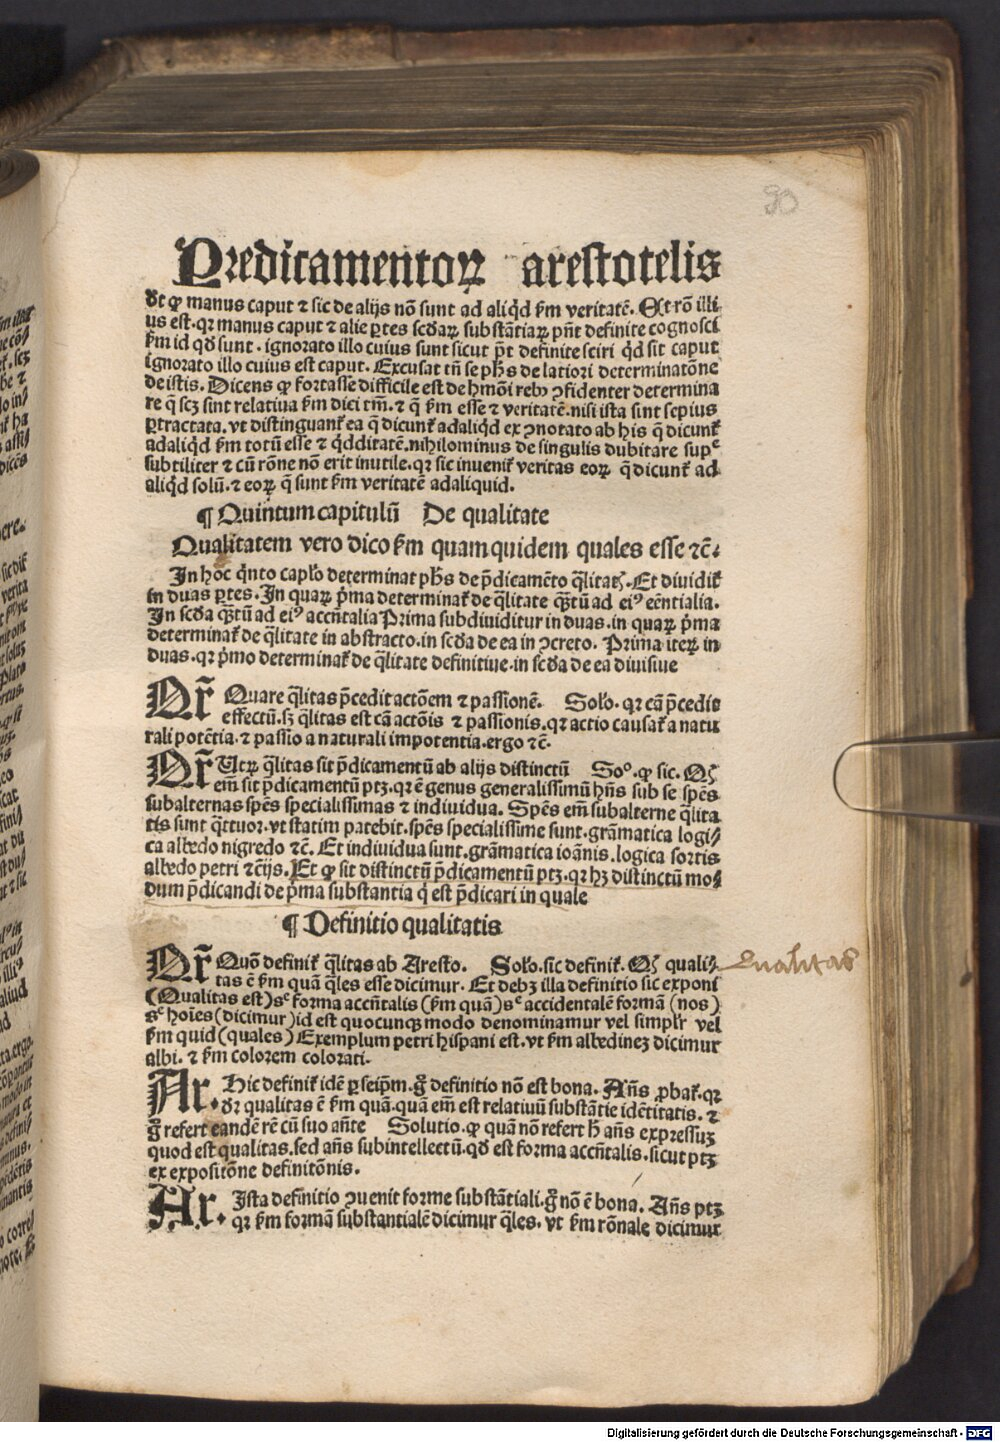 90
Predicamentoꝝ arestotelis
dt ꝙ manus caput ⁊ sic de alijs nō sunt ad aliq̇d ẜm veritatē. Et rō illi
us est. qꝛ manus caput ⁊ alie ꝑtes scd̓aꝝ substātiaꝝ pn̄t definite cognosci
ẜm id qd̓ sunt. ignorato illo cuius sunt sicut p̄t definite sciri q̇d sit caput
ignorato illo cuius est caput. Excusat tn̄ se ph̓s de latiori determinatōne
de istis. Dicens ꝙ fortasse difficile est de hmōi rebꝰ ↄfidenter determina
re q̄ scꝫ sint relatiua ẜm dici tm̄. ⁊ q̄ ẜm esse ⁊ veritatē. nisi ista sint sepius
ꝑtractata. vt distinguant̄ ea q̄ dicunt̄ adaliq̇d ex ↄnotato ab his q̄ dicunt̄
adaliq̇d ẜm totū esse ⁊ q̇dditatē. nihilominus de singulis dubitare supᵉ
subtiliter ⁊ cū rōne nō erit inutile. qꝛ sic inuenit̄ veritas eoꝝ q̄ dicunt̄ ad
aliq̇d solū. ⁊ eoꝝ q̄ sunt ẜm veritatē adaliquid.
¶ Quintum capitulū De qualitate
Qualitatem vero dico ẜm quam quidem quales esse ⁊c̄.
In hoc q̇nto caplo determinat ph̓s de p̄dicamēto q̄litatꝭ. Et diuidit̄
in duas ꝑtes. In quaꝝ p̄ma determinat̄ de q̄litate q̄ꝫtū ad eiꝰ eēntialia.
In scd̓a q̄ꝫtū ad eiꝰ accn̄talia Prima subdiuiditur in duas. in quaꝝ p̄ma
determinat̄ de q̄litate in abstracto. in scd̓a de ea in ↄcreto. Prima iteꝝ in
duas. qꝛ p̄mo determinat̄ de q̄litate definitiue. in scd̓a de ea diuisiue
Qr̄ Quare q̄litas p̄cedit actōem ⁊ passionē. Solo. qꝛ cā p̄cedit
effectū. sꝫ q̄litas est cā actōis ⁊ passionis. qꝛ actio causat̄ a natu
rali potētia. ⁊ passio a naturali impotentia. ergo ⁊c̄.
Qr̄ Utꝝ q̄litas sit p̄dicamentū ab alijs distinctū Soº. ꝙ sic. Qꝭ
em̄ sit p̄dicamentū ptꝫ. qꝛ ē genus generalissimū hn̄s sub se spēs
subalternas spēs specialissimas ⁊ indiuidua. Spēs em̄ subalterne q̄lita
tis sunt q̄ttuor. vt statim patebit. spēs specialissime sunt. grāmatica logi⸗
ca albedo nigredo ⁊c̄. Et indiuidua sunt. grāmatica ioānis. logica sortis
albedo petri ⁊c̄ijs. Et ꝙ sit distinctū p̄dicamentū ptꝫ. qꝛ hꝫ distinctū mo⸗
dum p̄dicandi de p̄ma substantia q̇ est p̄dicari in quale
¶ Definitio qualitatis
Qr̄ Quō definit̄ q̄litas ab Aresto. Solo. sic definit̄. Qꝭ quali⸗
tas ē ẜm quā q̄les esse dicimur. Et debꝫ illa definitio sic exponi
(Qualitas est) sᵉ forma accn̄talis (ẜm quā) sᵉ accidentalē formā (nos)
sᵉ hoīes (dicimur) id est quocunqꝫ modo denominamur vel simplr̄ vel
ẜm quid (quales) Exemplum petri hispani est. vt ẜm albedinez dicimur
albi. ⁊ ẜm colorem colorati.
Ar. Hic definit̄ idē ꝑ seip̄m. g̊ definitio nō est bona. Añs ꝓbat̄. qꝛ
dr̄ qualitas ē ẜm quā. quā em̄ est relatiuū substātie idētitatis. ⁊
g̊ refert eandē rē cū suo añte Solutio. ꝙ quā nō refert h̄ añs expressuꝫ
quod est qualitas. sed añs subintellectū. qd̓ est forma accn̄talis. sicut ptꝫ
ex expositōne definitōnis.
Ar. Ista definitio ↄuenit forme substātiali. g̊ nō ē bona. Añs ptꝫ
qꝛ ẜm formā substantialē dicimur q̄les. vt ẜm rōnale dicimur
Qualitas
Digitalisierung gefördert durch die Deutsche Forschungsgemeinschaft - DFG